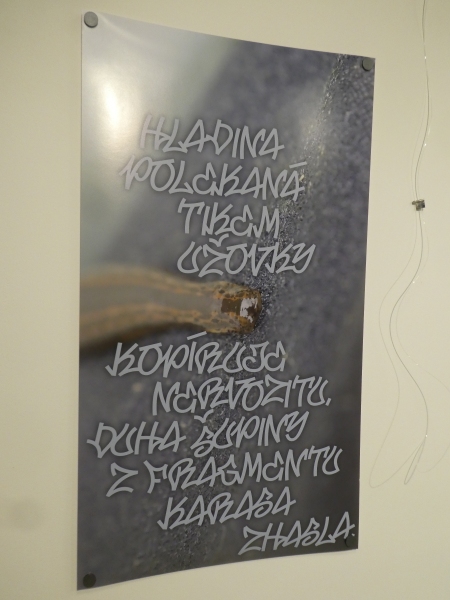 HLADINA
POLEKANÁ
TIKEM
UŽOVKY
KOPÍRUJE
NERVOZITU,
DUHA ŠUPINY
Z FRAGMENTU
KARASA
ZHASLA.